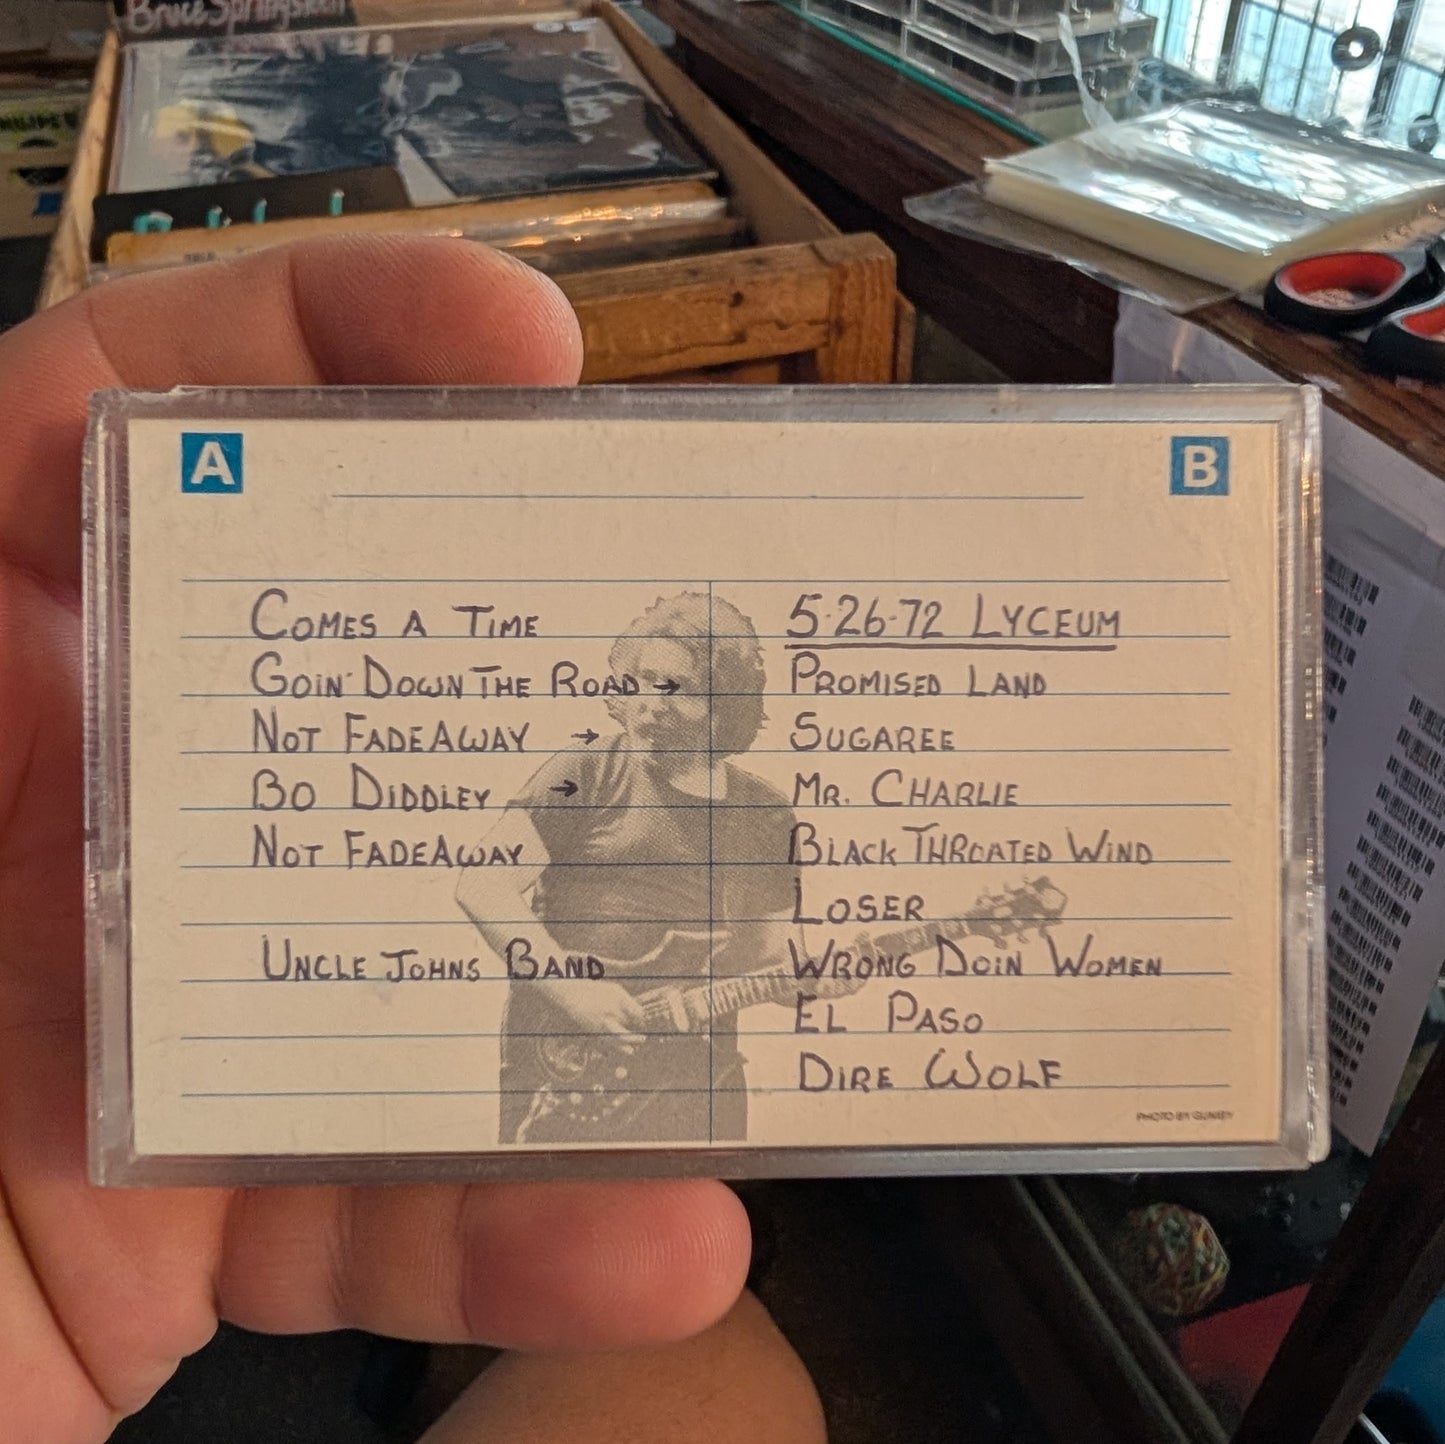 Bruce Springsteen
A
B
COMES A TIME
GOIN' DOWN THE ROAD →
NOT FADE AWAY →
BO DIDDLEY →
NOT FADE AWAY
UNCLE JOHNS BAND
5·26·72 LYCEUM
PROMISED LAND
SUGAREE
MR. CHARLIE
BLACK THROATED WIND
LOSER
WRONG DOIN WOMEN
EL PASO
DIRE WOLF
PHOTO BY